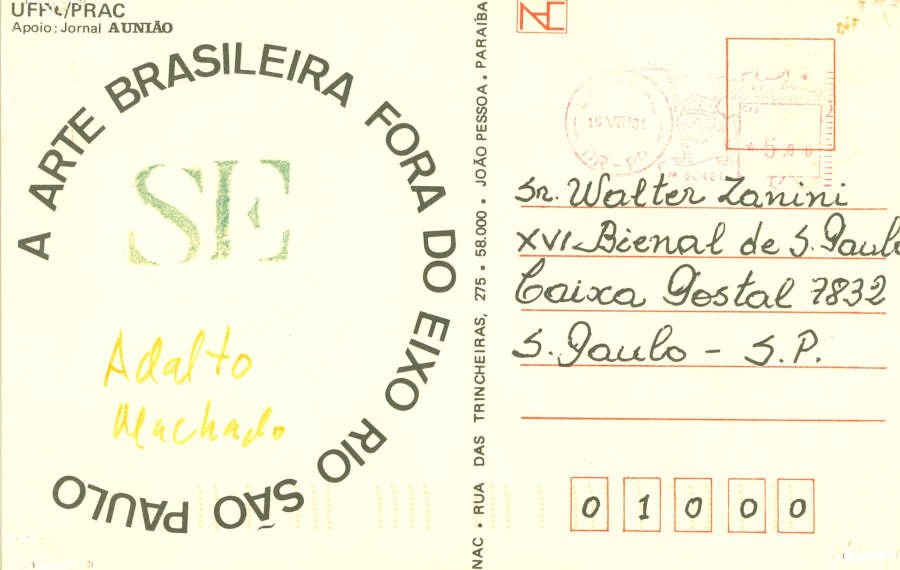 UFPb/PRAC
Apoio: Jornal A UNIÃO
A ARTE BRASILEIRA FORA DO EIXO RIO SÃO PAULO
SE
Adalto
Machado
NAC • RUA DAS TRINCHEIRAS, 275 • 58.000 • JOÃO PESSOA • PARAÍBA
BRASIL
5,00
Sr. Walter Zanini
XVI Bienal de S. Paulo
Caixa Postal 7832
S. Paulo - S.P.
0 1 0 0 0